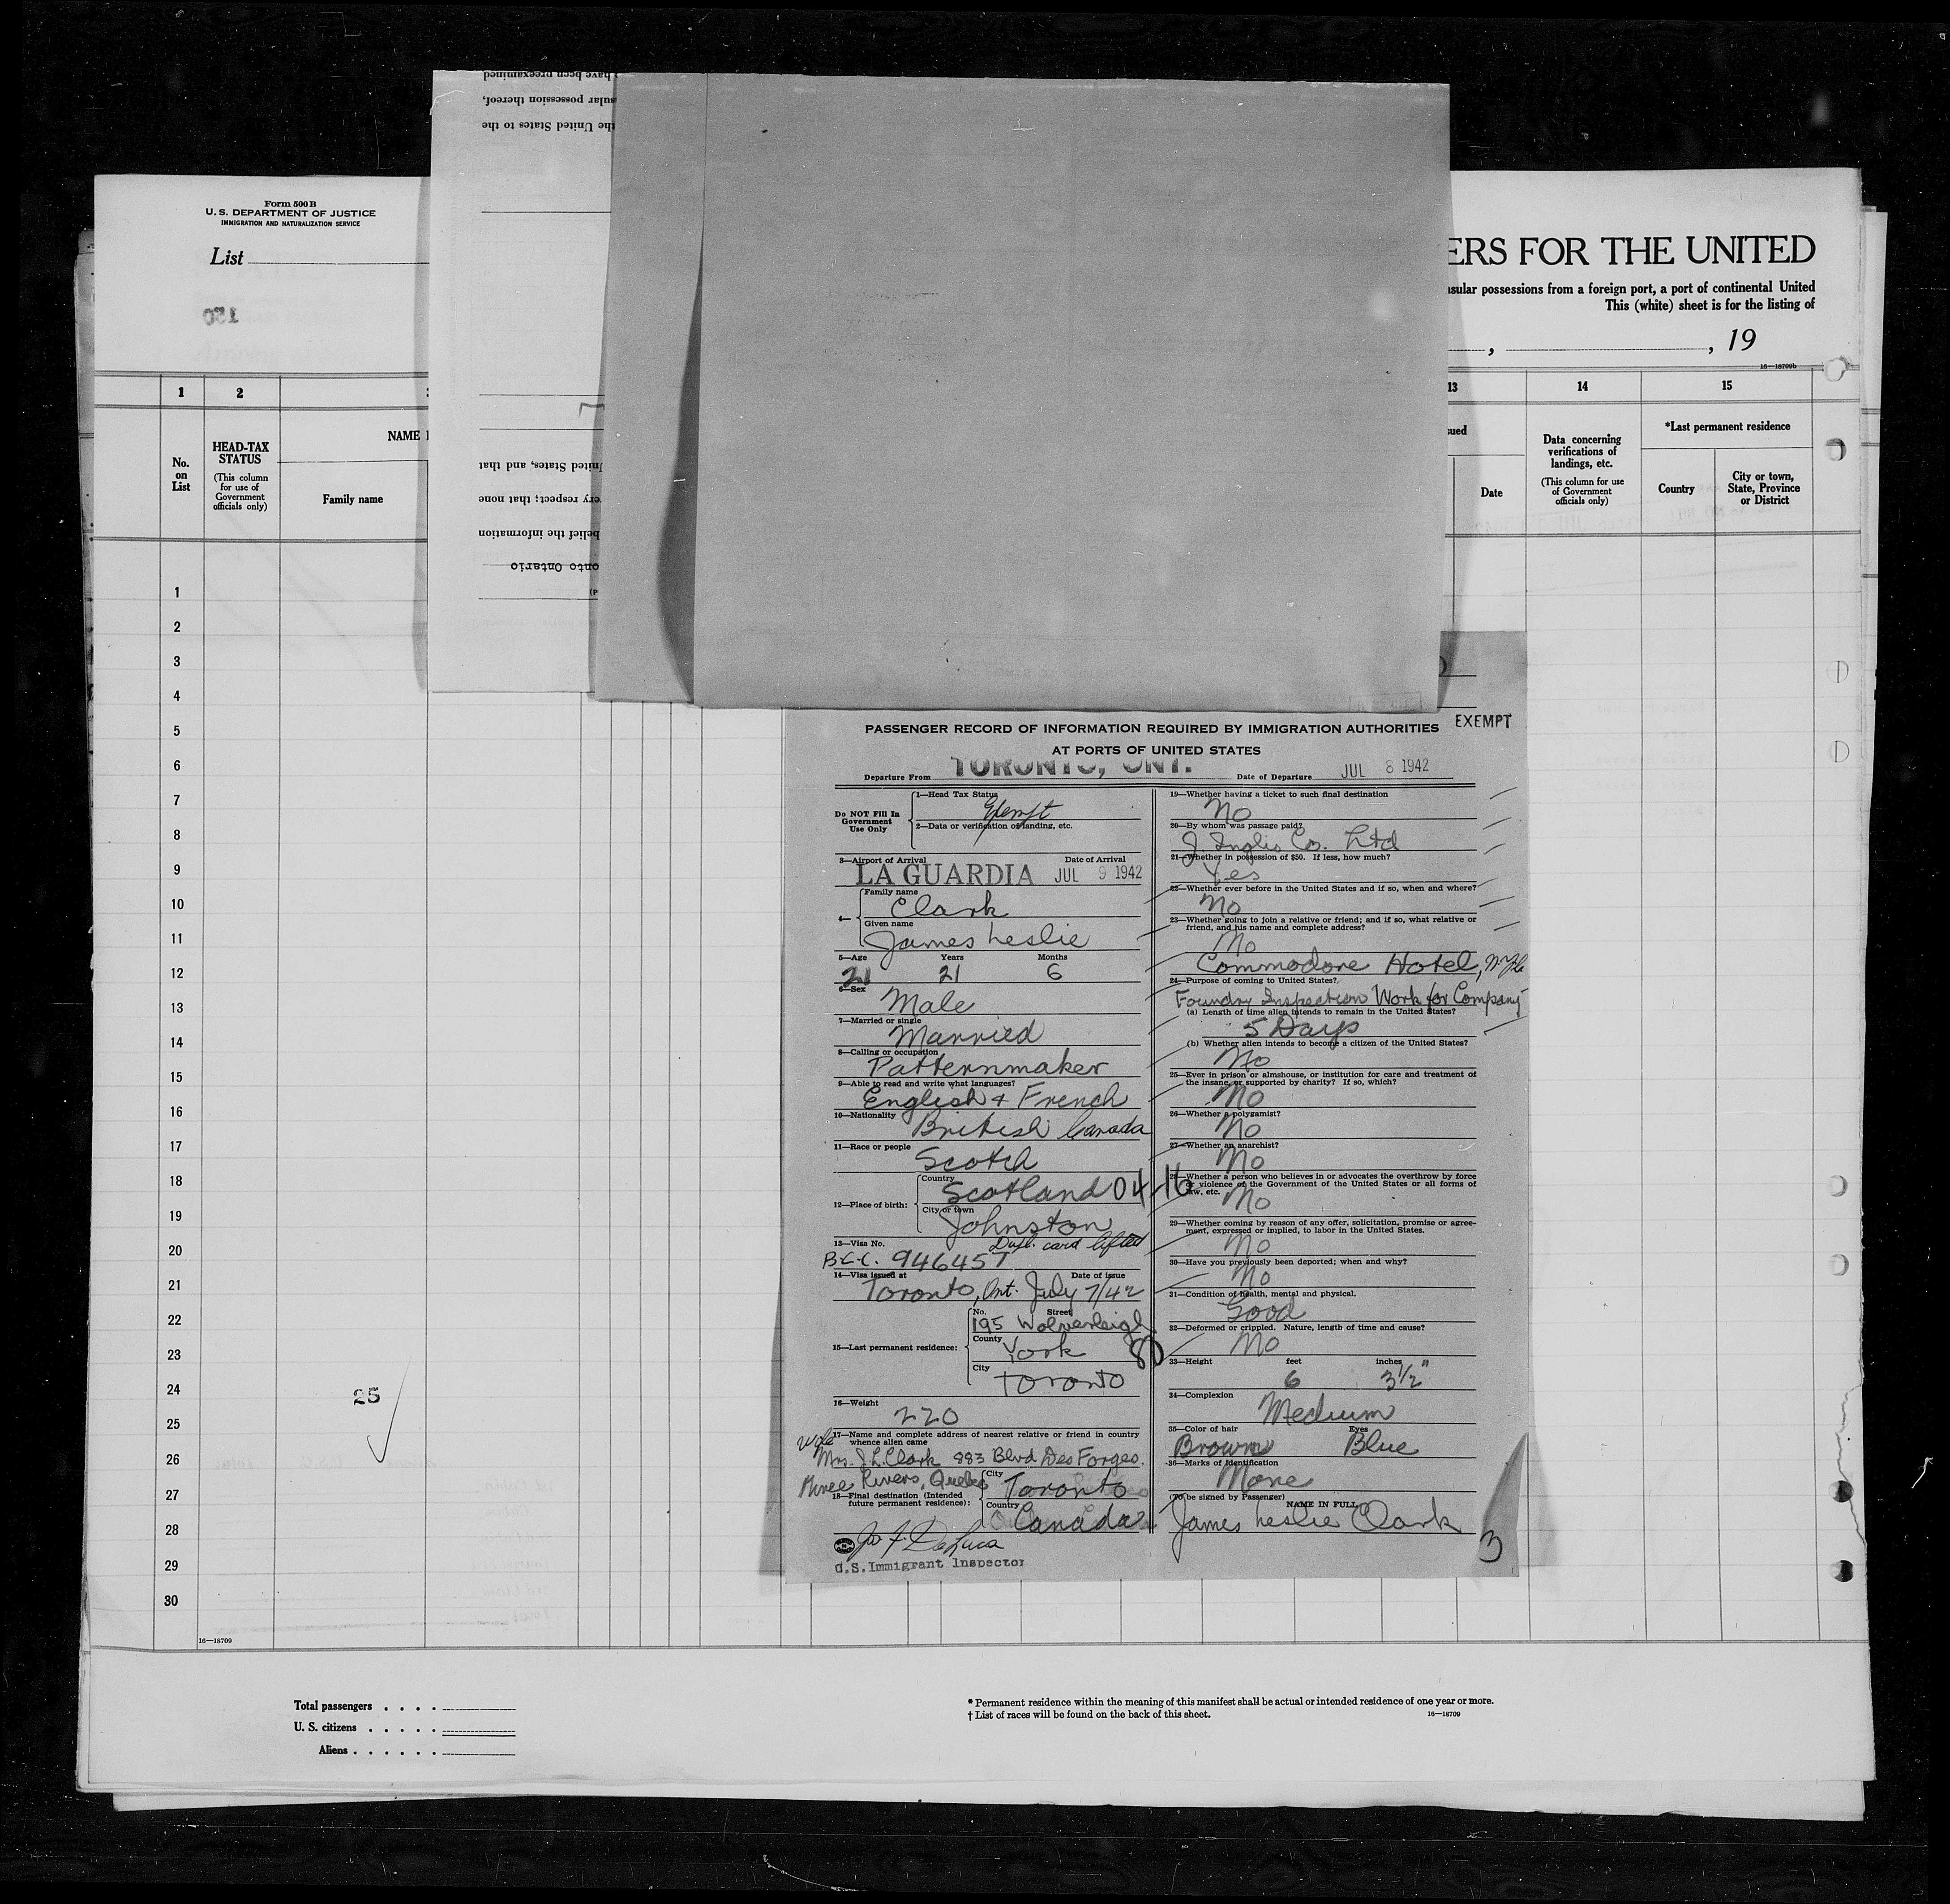 have been preexamined
sular possession thereof,
the United States to the
United States, and that
ery respect; that none
belief the information
onto Ontario
Form 500 B
U. S. DEPARTMENT OF JUSTICE
IMMIGRATION AND NATURALIZATION SERVICE
List
130
ERS FOR THE UNITED
nsular possessions from a foreign port, a port of continental United
This (white) sheet is for the listing of
, , 19
16—18709b
1 2 13 14 15
No. on List
HEAD-TAX STATUS
(This column for use of Government officials only)
NAME
Family name
sued
Date
Data concerning verifications of landings, etc.
(This column for use of Government officials only)
*Last permanent residence
Country
City or town, State, Province or District
1
2
3
4
5
6
7
8
9
10
11
12
13
14
15
16
17
18
19
20
21
22
23
24
25
26
27
28
29
30
25
16—18709
EXEMPT
PASSENGER RECORD OF INFORMATION REQUIRED BY IMMIGRATION AUTHORITIES
AT PORTS OF UNITED STATES
Departure From TORONTO, ONT. Date of Departure JUL 8 1942
Do NOT Fill In Government Use Only
1—Head Tax Status Exempt
2—Data or verification of landing, etc.
3—Airport of Arrival Date of Arrival
LA GUARDIA JUL 9 1942
4— Family name
Clark
Given name
James Leslie
5—Age Years Months
21 21 6
6—Sex
Male
7—Married or single
Married
8—Calling or occupation
Patternmaker
9—Able to read and write what languages?
English + French
10—Nationality
British Canada
11—Race or people
Scotch
12—Place of birth: Country
Scotland 04-16
City or town
Johnston
13—Visa No. Dupl. card lifted
B.C.C. 946457
14—Visa issued at Date of issue
Toronto, Ont. July 7/42
15—Last permanent residence: No. Street
195 Wolverleigh
County
York 80
City
Toronto
16—Weight
220
17—Name and complete address of nearest relative or friend in country whence alien came
wife
Mrs. J. L. Clark 883 Blvd Des Forges.
Three Rivers, Quebec
18—Final destination (Intended future permanent residence): City
Toronto
Country
Canada
U.S. Immigrant Inspector
19—Whether having a ticket to such final destination
No
20—By whom was passage paid?
J. Inglis Co. Ltd
21—Whether in possession of $50. If less, how much?
Yes
22—Whether ever before in the United States and if so, when and where?
No
23—Whether going to join a relative or friend; and if so, what relative or
friend, and his name and complete address?
No
Commodore Hotel,
24—Purpose of coming to United States?
Foundry Inspection Work for Company
(a) Length of time alien intends to remain in the United States?
5 Days
(b) Whether alien intends to become a citizen of the United States?
No
25—Ever in prison or almshouse, or institution for care and treatment of
the insane, or supported by charity? If so, which?
No
26—Whether a polygamist?
No
27—Whether an anarchist?
No
28—Whether a person who believes in or advocates the overthrow by force
or violence of the Government of the United States or all forms of
law, etc.
No
29—Whether coming by reason of any offer, solicitation, promise or agree-
ment, expressed or implied, to labor in the United States.
No
30—Have you previously been deported; when and why?
No
31—Condition of health, mental and physical.
Good
32—Deformed or crippled. Nature, length of time and cause?
No
33—Height feet inches
6 3½"
34—Complexion
Medium
35—Color of hair Eyes
Brown Blue
36—Marks of Identification
None
(To be signed by Passenger) NAME IN FULL
James Leslie Clark
3
Total passengers . . . .
U. S. citizens . . . . .
Aliens . . . . . .
* Permanent residence within the meaning of this manifest shall be actual or intended residence of one year or more.
† List of races will be found on the back of this sheet. 16—18709